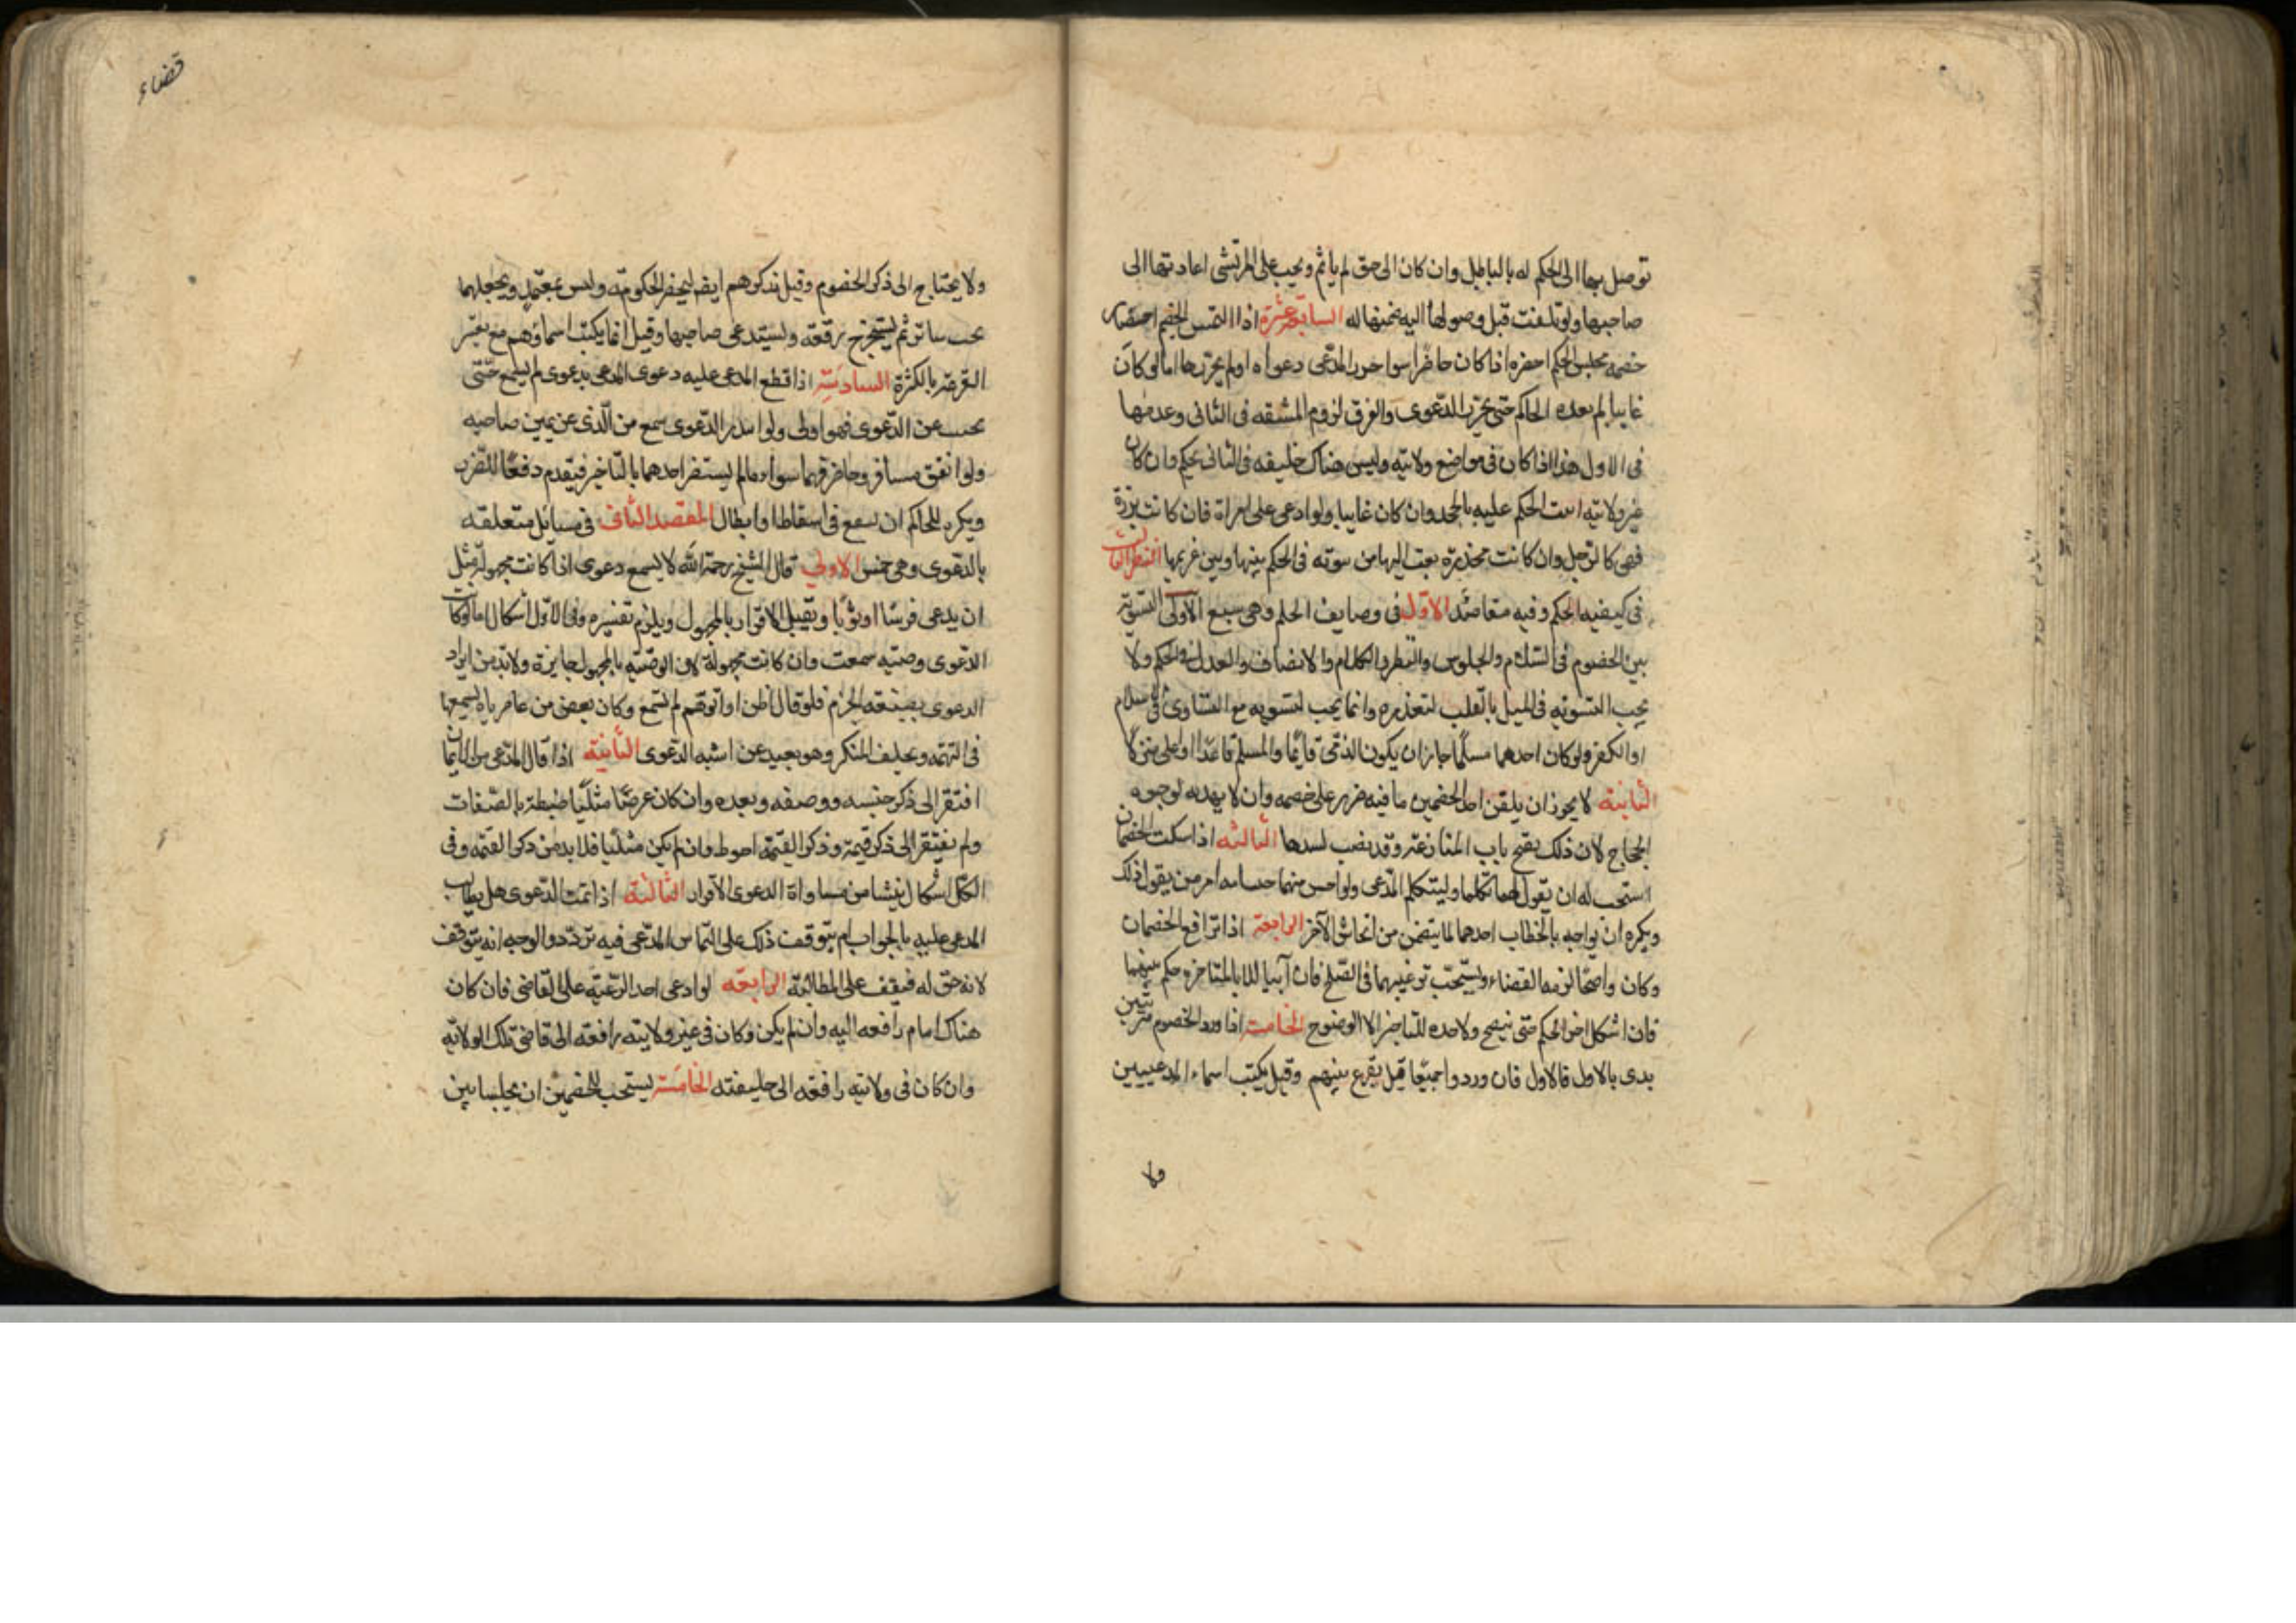 توصل بها الى الحكم له بالباطل وان كان الى حق لم ياثم ويجب على المرتشى اعادتها الى
صاحبها ولو تلفت قبل وصولها اليه ضمنها له السابعة عشرة اذا التمس الخصم احضار
خصمه مجلس الحكم احضره اذا كان حاضرا سوا حرر المدعى دعواه او لم يحررها اما لو كان
غايبا لم يعده الحاكم حتى يحرر الدعوى والفرق لزوم المشقه فى الثانى وعدمها
فى الاول هذا اذا كان فى مواضع ولايته وليس هناك خليفه فى الثانى يحكم وان كان
غير ولايته اثبت الحكم عليه بالحجه وان كان غايبا ولو ادعى على امراة فان كانت برزة
فهى كالرجل وان كانت مخدرة بعث اليها من ينوبه فى الحكم بينها وبين غريمها النظر الثالث
فى كيفيه الحكم وفيه مقاصد الاول فى وصايف الحكم وهى سبع الاولى التسوية
بين الخصوم فى السلام والجلوس والنظر والكلام والانصاف والعدل فى الحكم ولا
يجب التسويه فى الميل بالقلب لتعذره وانما يجب التسويه مع التساوى فى الاسلام
او الكفر ولو كان احدهما مسلما جاز ان يكون الذمى قايما والمسلم قاعدا او اعلى منزلا
الثانية لا يجوز ان يلقن احد الخصمين ما فيه ضرر على خصمه وان لا يهديه لوجوه
الحجاج لان ذلك يفتح باب المنازعة وقد نصب لسدها الثالثه اذا سكت الخصمان
استحب له ان يقول لهما تكلما او ليتكلم المدعى ولو احس منهما احتشامه امر من يقول ذلك
ويكره ان يواجه بالخطاب احدهما لما يتضمن من ايحاش الآخر الرابعة اذا ترافع الخصمان
وكان واضحا لزمه القضاء ويستحب ترغيبهما فى الصلح فان آبيا الا بالمناجزه حكم بينهما
فان اشكل اخر الحكم حتى يتضح ولا حده للتاخير الا الوضوح الخامسة اذا ورد الخصوم مترتبين
بدى بالاول فالاول فان وردوا جميعا قيل يقرع بينهم وقيل يكتب اسماء المدعيين
ولا
قضاء
ولا يحتاج الى ذكر الخصوم وقيل يذكرهم ايضا ليحضر الحكومة معه وليس بمعتمد ويجعلها
تحت ساتر ثم يستخرج رقعه ويستدعى صاحبها وقيل انما يكتب اسماؤهم مع تعسر
القرعة بالكثرة السادسة اذا قطع المدعى عليه دعوى المدعى بدعوى لم يسمع حتى
يجيب عن الدعوى فهو اولى ولو ابتدر الدعوى سمع من الذى عن يمين صاحبه
ولو اتفق مسافر وحاضر فهما سواء ما لم يستضر احدهما بالتاخير فيقدم دفعا للضرر
ويكره للحاكم ان يشفع فى اسقاط او ابطال المقصد الثانى فى مسائل متعلقه
بالدعوى وهى خمس الاولى قال الشيخ رحمة الله لا يسمع دعوى اذا كانت مجهولة مثل
ان يدعى فرسا او ثوبا ويقبل الاقرار بالمجهول ويلزم تفسيره وفى الاول اشكال اما لو كانت
الدعوى وصيه سمعت وان كانت مجهولة لان الوصيه بالمجهول جايزة ولا بد من ايراد
الدعوى بصيغه الجزم فلو قال اظن او اتوهم لم تسمع وكان بعض من عاصرناه يسمعها
فى التهمه ويحلف المنكر وهو بعيد عن اشبه الدعوى الثانية اذا قال المدعى من الاثمان
افتقر الى ذكر جنسه ووصفه ونقده وان كان عرضا مثليا ضبطه بالصفات
ولم يفتقر الى ذكر قيمة وذكر القيمة احوط وان لم يكن مثليا فلا بد من ذكر القيمه وفى
الكل اشكال ينشا من مساواة الدعوى الاقرار الثالثة اذا تمت الدعوى هل يطالب
المدعى عليه بالجواب ام يتوقف ذلك على التماس المدعى فيه تردد والوجه انه يتوقف
لانه حق له فيقف على المطالبة الرابعه لو ادعى احد الرعية على القاضى فان كان
هناك امام رافعه اليه وان لم يكن وكان فى غير ولايته رافعه الى قاضى تلك الولاية
وان كان فى ولايته رافعه الى خليفته الخامسة يستحب للخصمين ان يجلسا بين